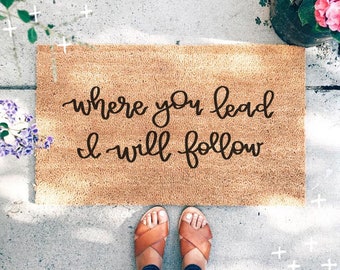 where you lead
I will follow